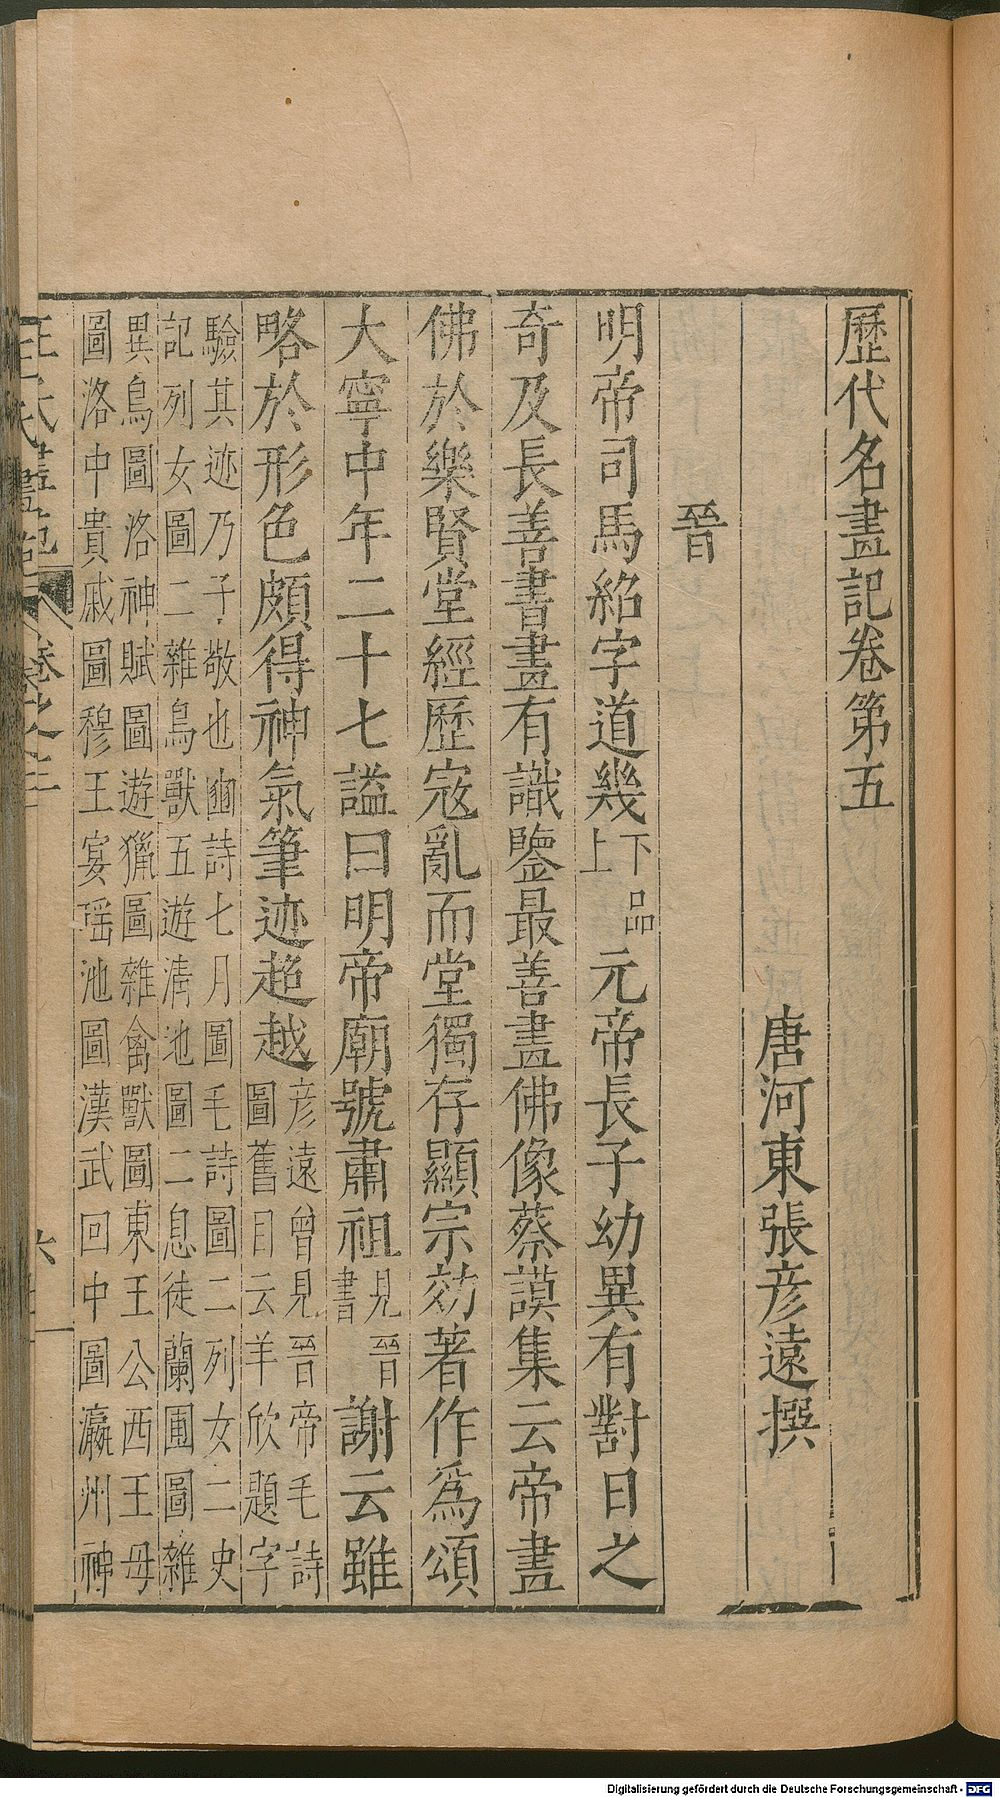 歷代名畫記卷第五
唐河東張彦遠撰
晉
明帝司馬紹字道幾下品上元帝長子幼異有對日之
奇及長善書畫有識鑒最善畫佛像蔡謨集云帝畫
佛於樂賢堂經歷寇亂而堂獨存顯宗効著作爲頌
大寧中年二十七謚曰明帝廟號肅祖見晉書謝云雖
略於形色頗得神氣筆迹超越彦遠曾見晉帝毛詩
圖舊目云羊欣題字
驗其迹乃子敬也豳詩七月圖毛詩圖二列女二史
記列女圖二雜鳥獸五遊清池圖二息徒蘭圃圖雜
異鳥圖洛神賦圖遊獵圖雜禽獸圖東王公西王母
圖洛中貴戚圖穆王宴瑶池圖漢武回中圖瀛州神
王氏畫苑
卷之三
Digitalisierung gefördert durch die Deutsche Forschungsgemeinschaft - DFG